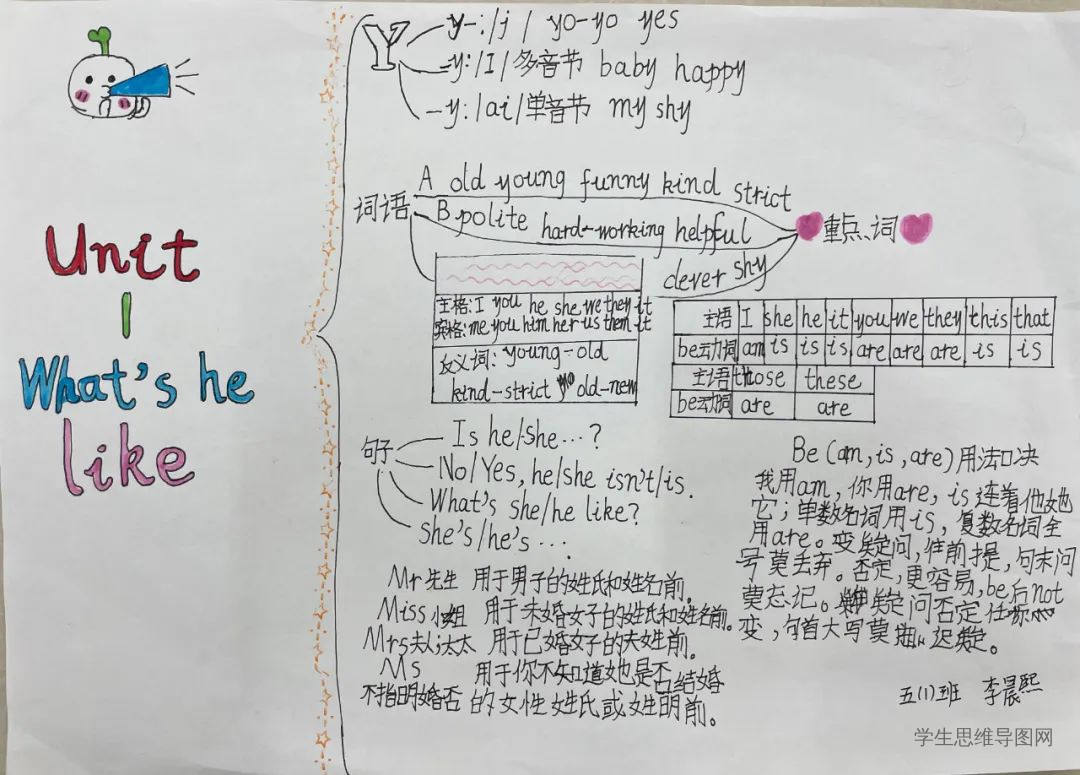 Unit
1
What's he
like
Y
y-:/j/ yo-yo yes
-y:/I/多音节 baby happy
-y:/ai/单音节 my shy
词语
A old young funny kind strict
B polite hard-working helpful
clever shy
重点词
主格:I you he she we they it
宾格:me you him her us them it
反义词:young-old
kind-strict old-new
主语 I she he it you we they this that
be动词 am is is is are are are is is
主语 those these
be动词 are are
句子
Is he/she…?
No/Yes, he/she isn't/is.
What's she/he like?
She's/he's….
Mr先生 用于男子的姓氏和姓名前。
Miss小姐 用于未婚女子的姓氏和姓名前。
Mrs夫人;太太 用于已婚女子的夫姓前。
Ms 用于你不知道她是否结婚
不指明婚否 的女性姓氏或姓明前。
Be(am,is,are)用法口决
我用am,你用are,is连着他她
它;单数名词用is,复数名词全
用are。变疑问,往前提,句末问
号莫丢弃。否定,更容易,be后not
莫忘记。疑问否定任你
变,句首大写莫迟疑。
五(1)班 李晨熙
学生思维导图网